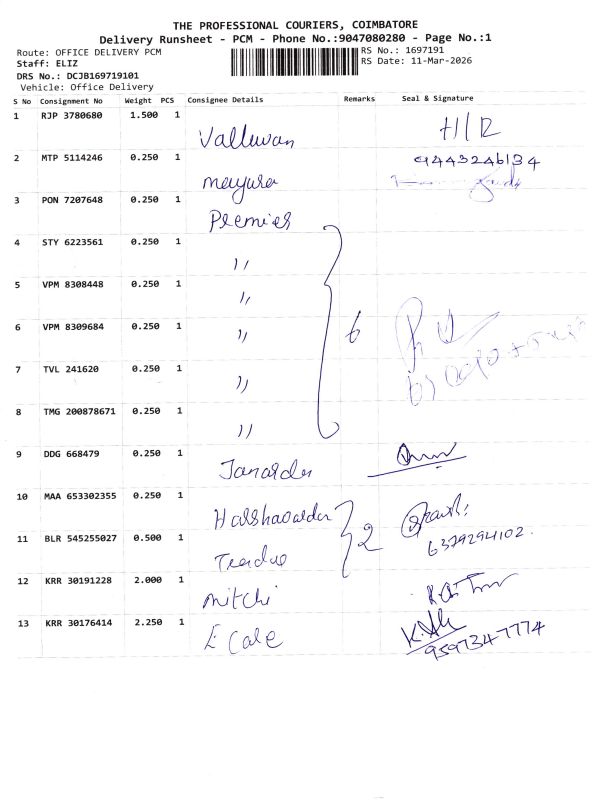 THE PROFESSIONAL COURIERS, COIMBATORE
Delivery Runsheet - PCM - Phone No.:9047080280 - Page No.:1
Route: OFFICE DELIVERY PCM RS No.: 1697191
Staff: ELIZ RS Date: 11-Mar-2026
DRS No.: DCJB169719101
Vehicle: Office Delivery
S No Consignment No Weight PCS Consignee Details Remarks Seal & Signature
1 RJP 3780680 1.500 1 Valluvan H/R
2 MTP 5114246 0.250 1 mayura 9443246134
3 PON 7207648 0.250 1 Premier
4 STY 6223561 0.250 1 ,,
5 VPM 8308448 0.250 1 ,,
6 VPM 8309684 0.250 1 ,, 6
7 TVL 241620 0.250 1 ,,
8 TMG 200878671 0.250 1 ,,
9 DDG 668479 0.250 1
10 MAA 653302355 0.250 1
11 BLR 545255027 0.500 1 2 6379294102.
12 KRR 30191228 2.000 1 mitchi
13 KRR 30176414 2.250 1 E Cale
9597347774